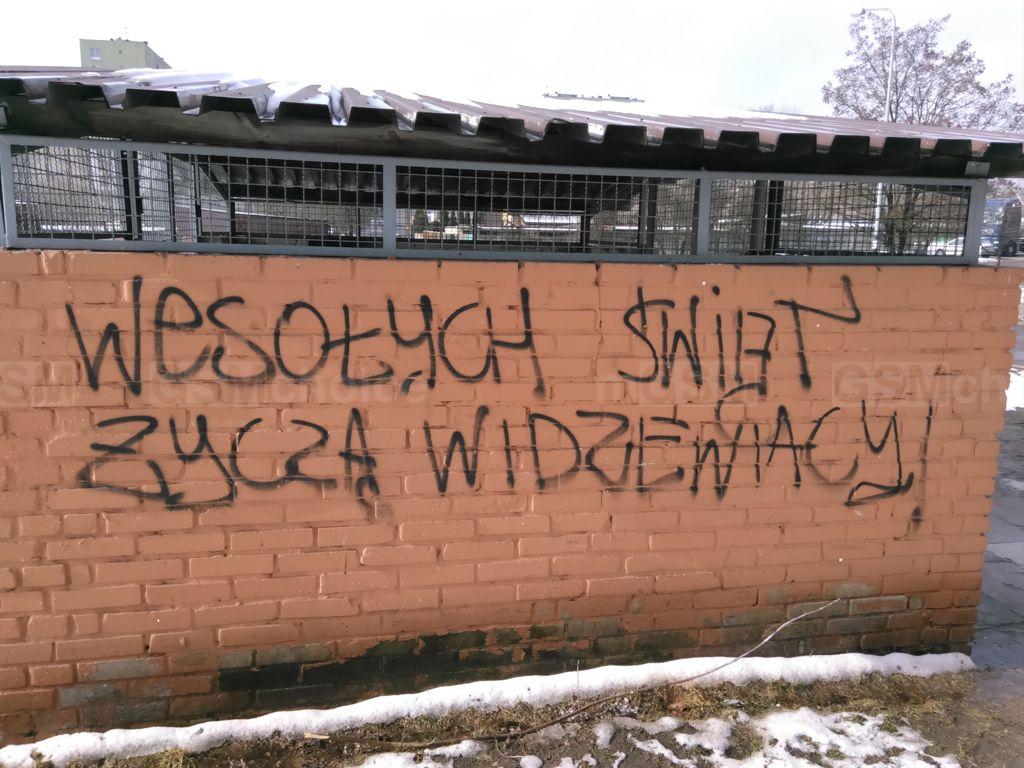 WESOŁYCH ŚWIĄT
ŻYCZĄ WIDZEWIACY!